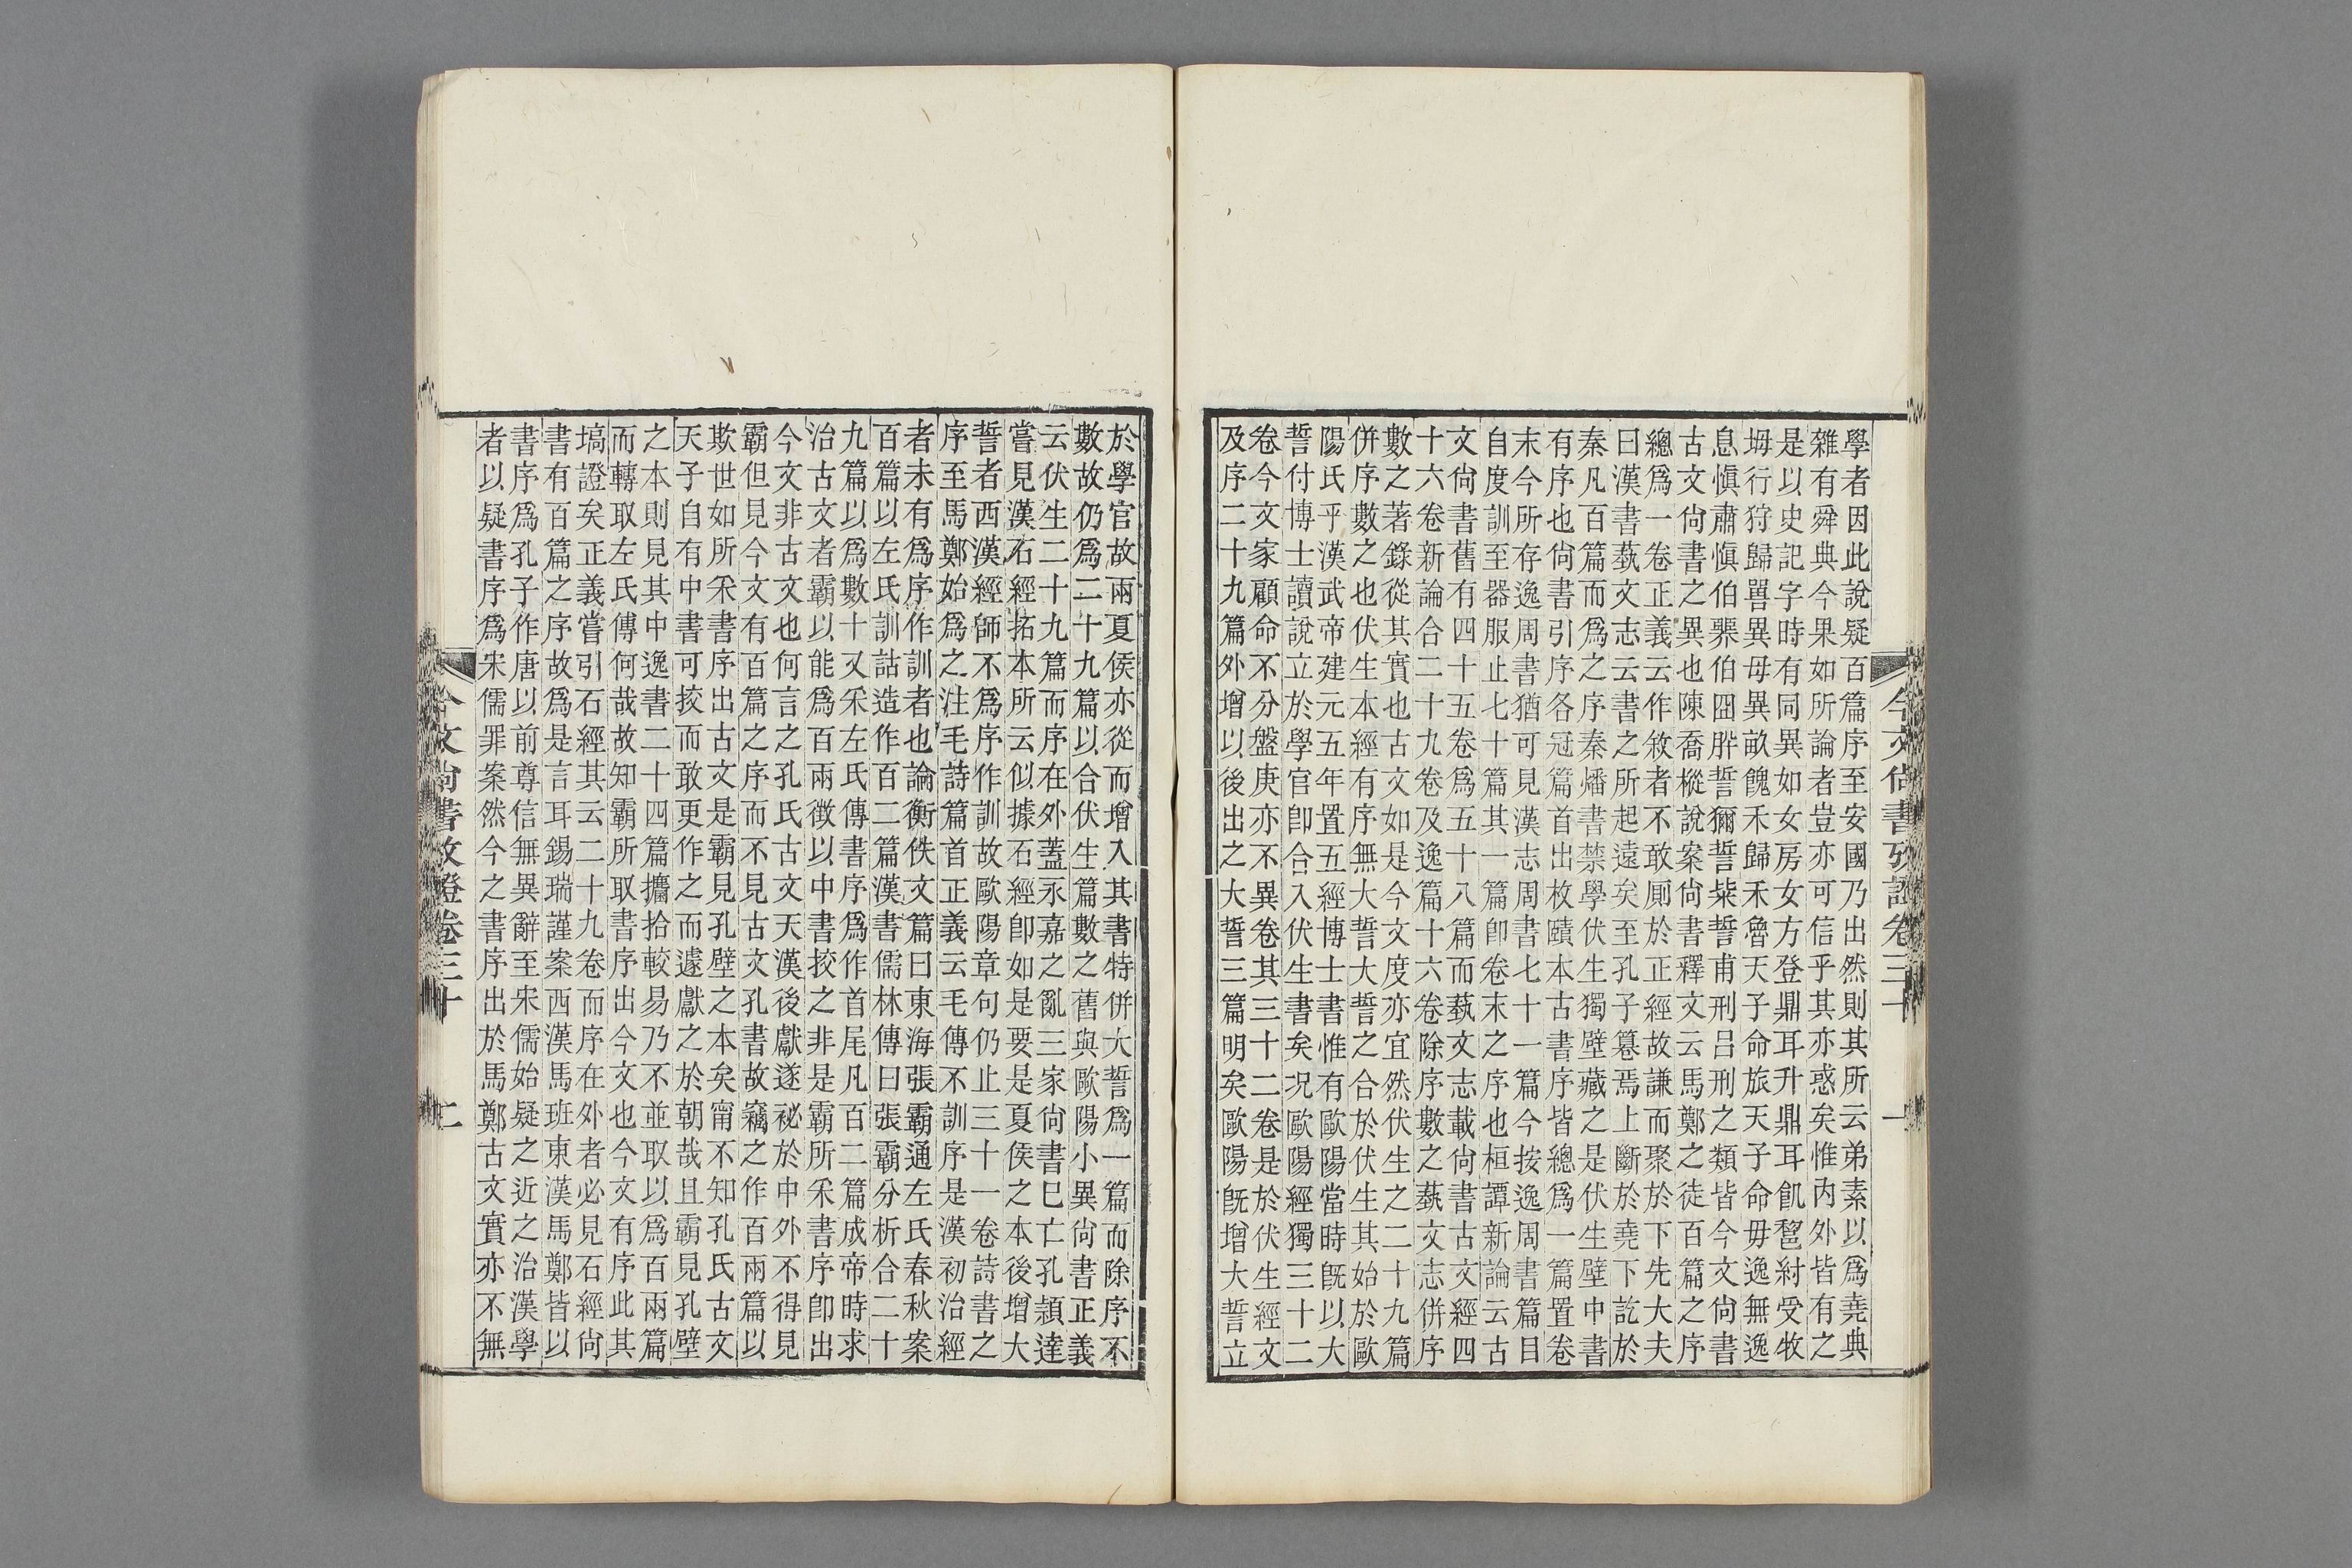 今文尚書攷證卷三十
學者因此說疑百篇序至安國乃出然則其所云弟素以爲堯典
雜有舜典今果如所論者豈亦可信乎其亦惑矣惟內外皆有之
是以史記字時有同異如女房女方登鼎耳升鼎耳飢䣛紂受牧
坶行狩歸嘼異毋異畝餽禾歸禾魯天子命旅天子命毋逸無逸
息愼肅愼伯臩伯囧肸誓獮誓粊誓甫刑呂刑之類皆今文尚書
古文尚書之異也陳喬樅說案尚書釋文云馬鄭之徒百篇之序
總爲一卷正義云作敘者不敢厠於正經故謙而聚於下先大夫
曰漢書蓺文志云書之所起遠矣至孔子篹焉上斷於堯下訖於
秦凡百篇而爲之序秦燔書禁學伏生獨壁藏之是伏生壁中書
有序也尚書引序各冠篇首出枚賾本古書序皆總爲一篇置卷
末今所存逸周書猶可見漢志周書七十一篇今按逸周書篇目
自度訓至器服止七十篇其一篇卽卷末之序也桓譚新論云古
文尚書舊有四十五卷爲五十八篇而蓺文志載尚書古文經四
十六卷新論合二十九卷及逸篇十六卷除序數之蓺文志併序
數之著錄從其實也古文如是今文度亦宜然伏生之二十九篇
併序數之也伏生本經有序無大誓大誓之合於伏生其始於歐
陽氏乎漢武帝建元五年置五經博士書惟有歐陽當時旣以大
誓付博士讀說立於學官卽合入伏生書矣况歐陽經獨三十二
卷今文家顧命不分盤庚亦不異卷其三十二卷是於伏生經文
及序二十九篇外增以後出之大誓三篇明矣歐陽旣增大誓立
於學官故兩夏侯亦從而增入其書特併大誓爲一篇而除序不
數故仍爲二十九篇以合伏生篇數之舊與歐陽小異尚書正義
云伏生二十九篇而序在外蓋永嘉之亂三家尚書巳亡孔頴達
嘗見漢石經拓本所云似據石經卽如是要是夏侯之本後增大
誓者西漢經師不爲序作訓故歐陽章句仍止三十一卷詩書之
序至馬鄭始爲之注毛詩篇首正義云毛傳不訓序是漢初治經
者未有爲序作訓者也論衡佚文篇曰東海張霸通左氏春秋案
百篇以左氏訓詁造作百二篇漢書儒林傳曰張霸分析合二十
九篇以爲數十又采左氏傳書序爲作首尾凡百二篇成帝時求
治古文者霸以能爲百兩徵以中書挍之非是霸所采書序卽出
今文非古文也何言之孔氏古文天漢後獻遂祕於中外不得見
霸但見今文有百篇之序而不見古文孔書故竊之作百兩篇以
欺世如所采書序出古文是霸見孔壁之本矣甯不知孔氏古文
天子自有中書可挍而敢更作之而遽獻之於朝哉且霸見孔壁
之本則見其中逸書二十四篇攟拾較易乃不並取以爲百兩篇
而轉取左氏傳何哉故知霸所取書序出今文也今文有序此其
塙證矣正義嘗引石經其云二十九卷而序在外者必見石經尚
書有百篇之序故爲是言耳錫瑞謹案西漢馬班東漢馬鄭皆以
書序爲孔子作唐以前尊信無異辭至宋儒始疑之近之治漢學
者以疑書序爲宋儒罪案然今之書序出於馬鄭古文實亦不無
今文尚書攷證卷三十